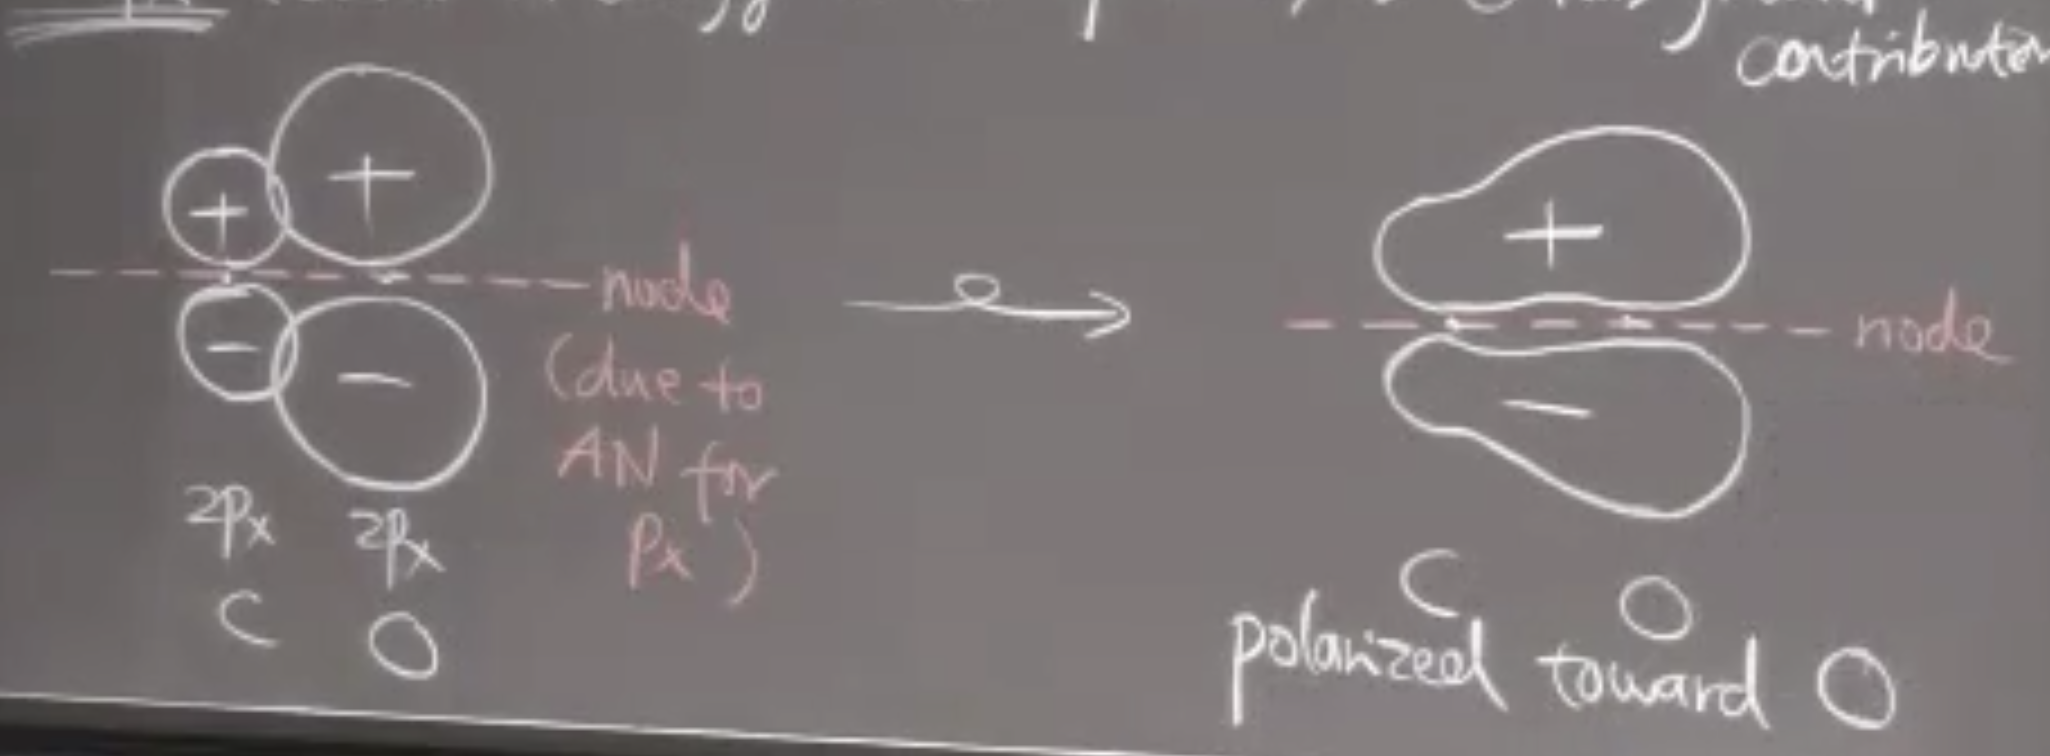 contribution
+ +
node
- -
(due to
AN for
Px)
2Px 2Px
C O
+
node
-
C O
polarized toward O